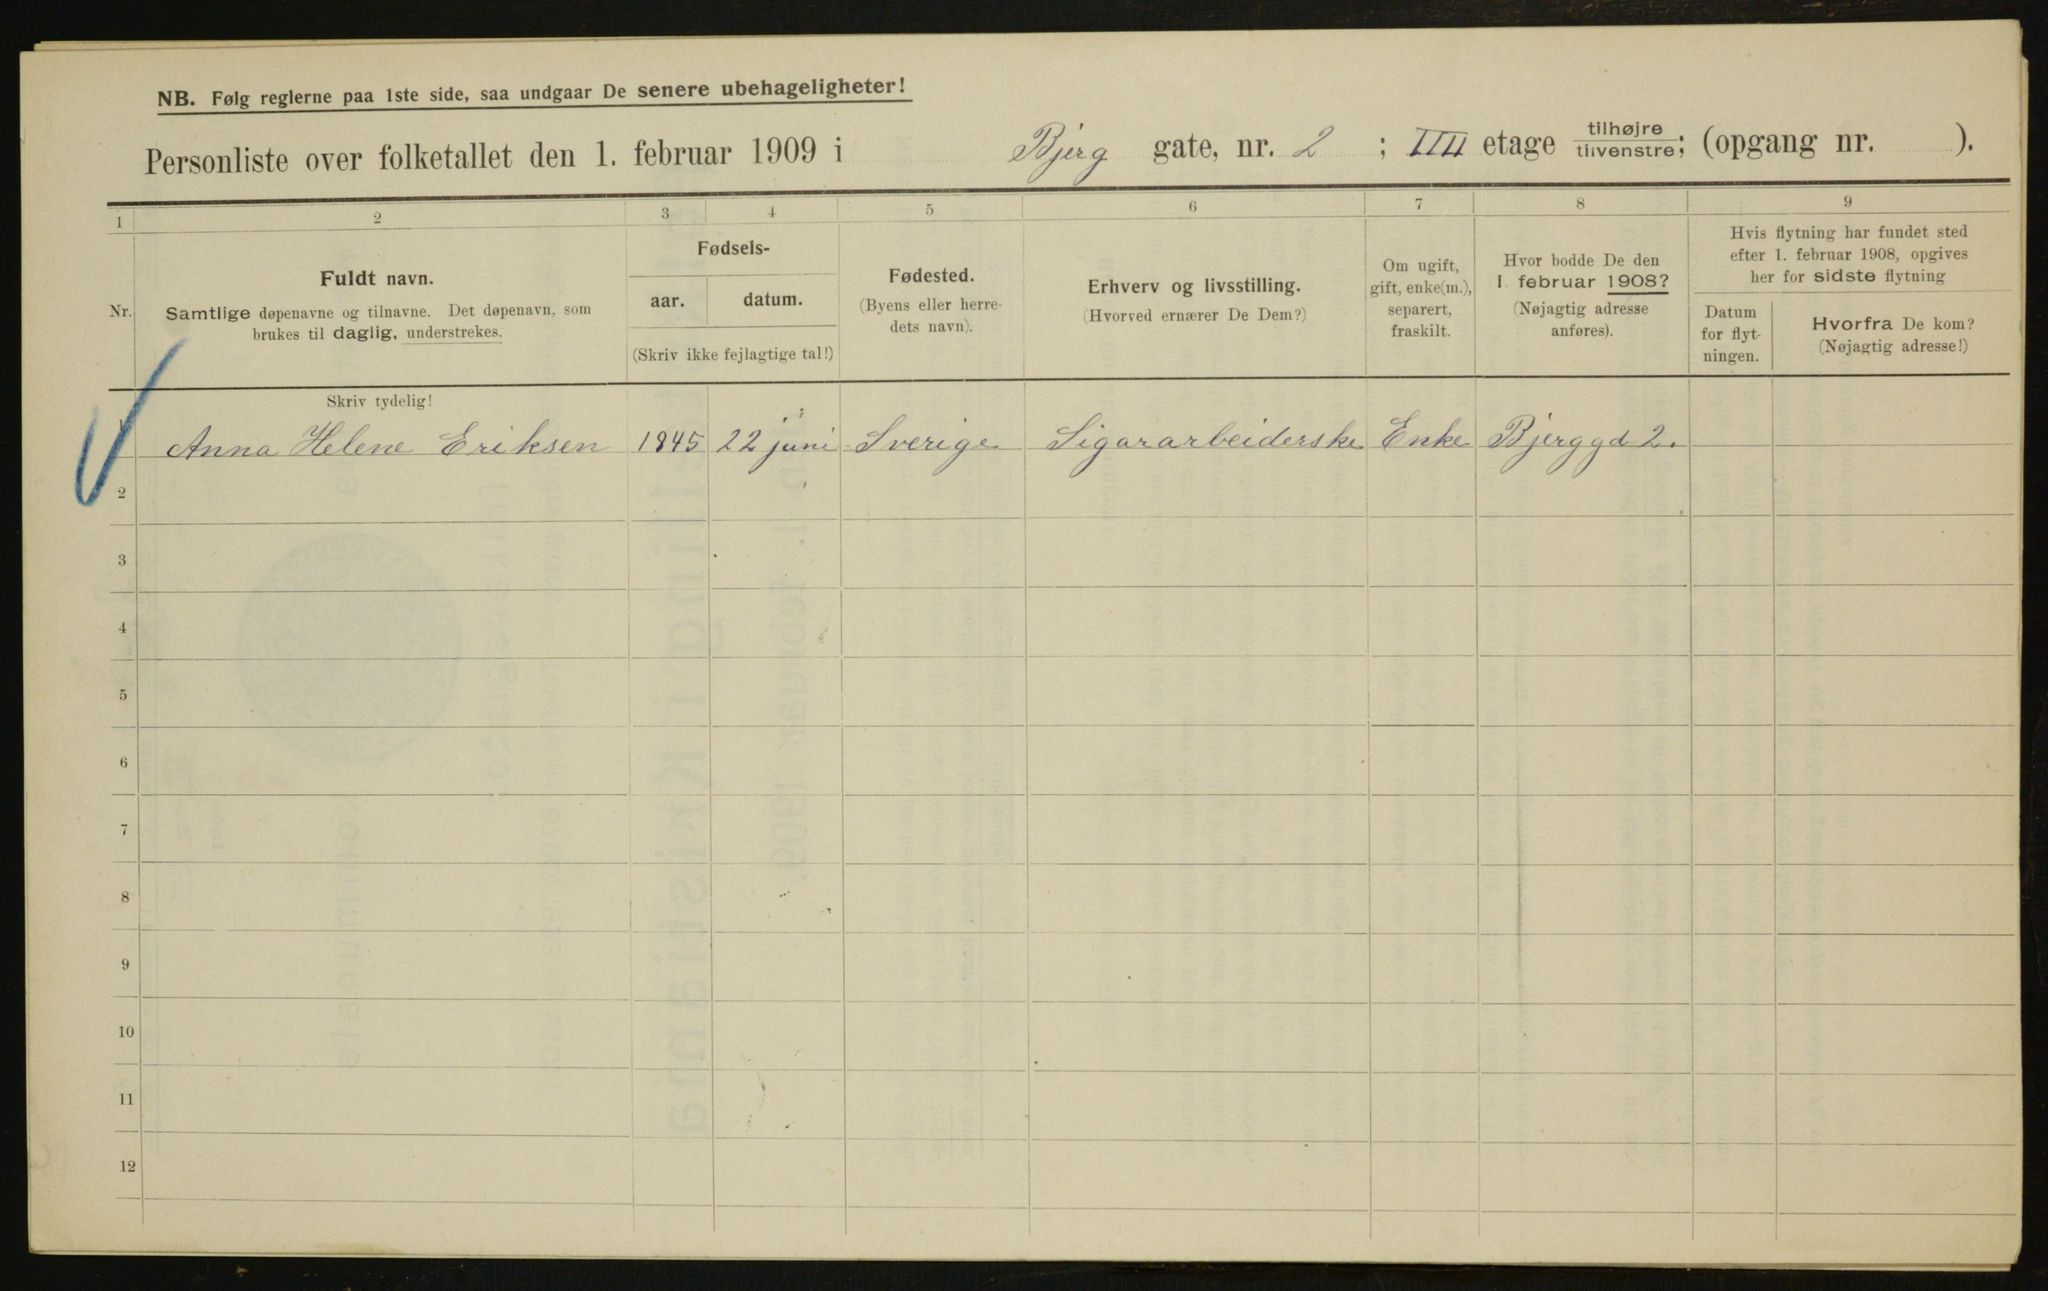 NB. Følg reglerne paa 1ste side, saa undgaar De senere ubehageligheter!
Personliste over folketallet den 1. februar 1909 i Bjerg gate, nr. 2 ; IIII etage tilhøjre tilvenstre; (opgang nr. ).
1 2 3 4 5 6 7 8 9
Nr.
Fuldt navn.
Samtlige døpenavne og tilnavne. Det døpenavn, som
brukes til daglig, understrekes.
Skriv tydelig!
Fødsels-
aar. datum.
(Skriv ikke fejlagtige tal!)
Fødested.
(Byens eller herre-
dets navn).
Erhverv og livsstilling.
(Hvorved ernærer De Dem?)
Om ugift,
gift, enke(m.),
separert,
fraskilt.
Hvor bodde De den
1. februar 1908?
(Nøjagtig adresse
anføres).
Hvis flytning har fundet sted
efter 1. februar 1908, opgives
her for sidste flytning
Datum
for flyt-
ningen.
Hvorfra De kom?
(Nøjagtig adresse!)
Anna Helene Eriksen 1845 22 juni Sverige Sigararbeiderske Enke Bjerggd 2.
2
3
4
5
6
7
8
9
10
11
12